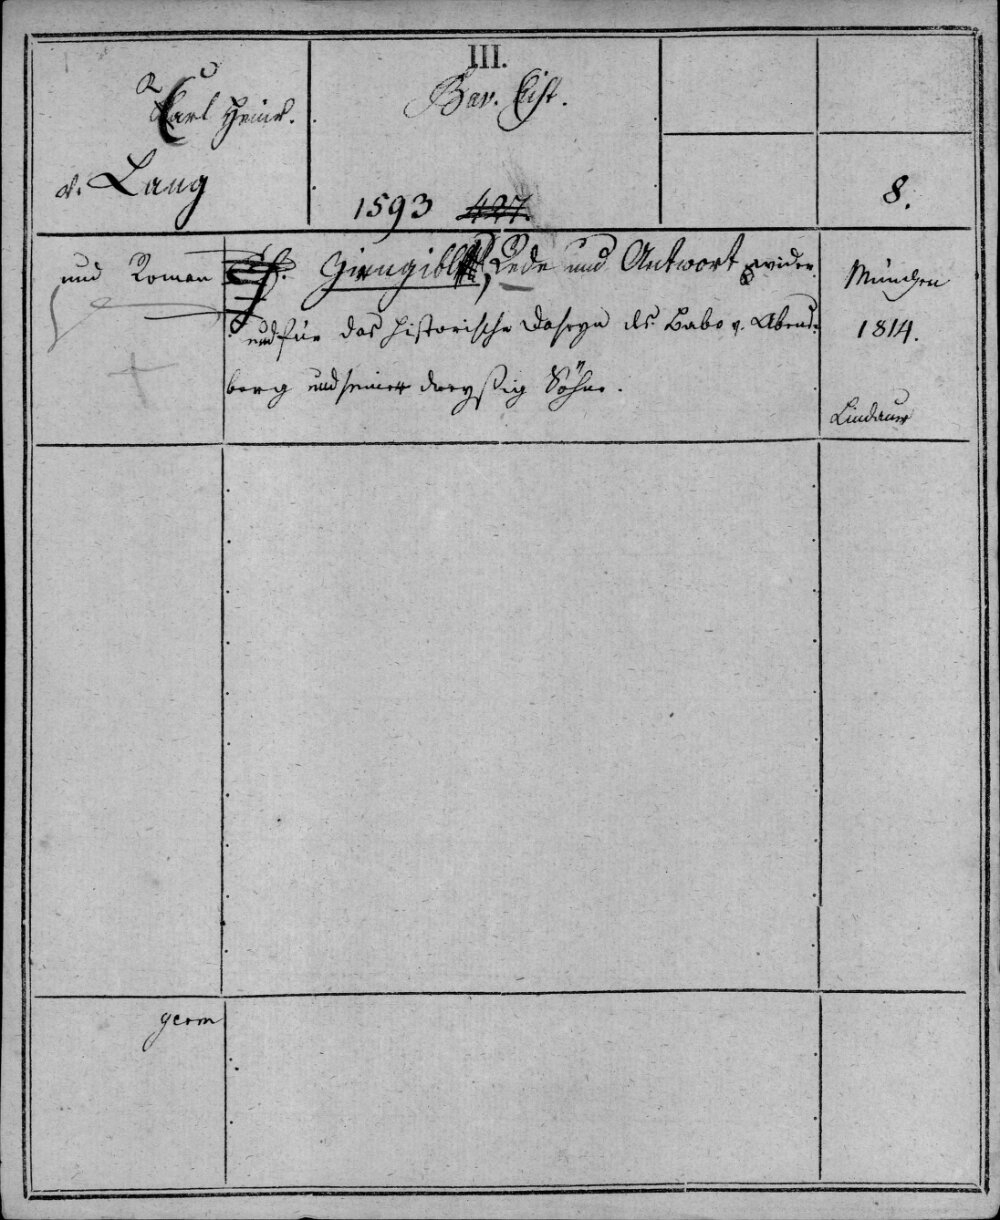 III.
Carl Heinr.
v. Lang
Bav. Hist.
1593 427.
8.
und Roman
Girngibl, Rede und Antwort wider
und für das historische Daseyn des Babo v. Abens-
berg und seiner dreyßig Söhne.
München
1814.
Lindauer
germ